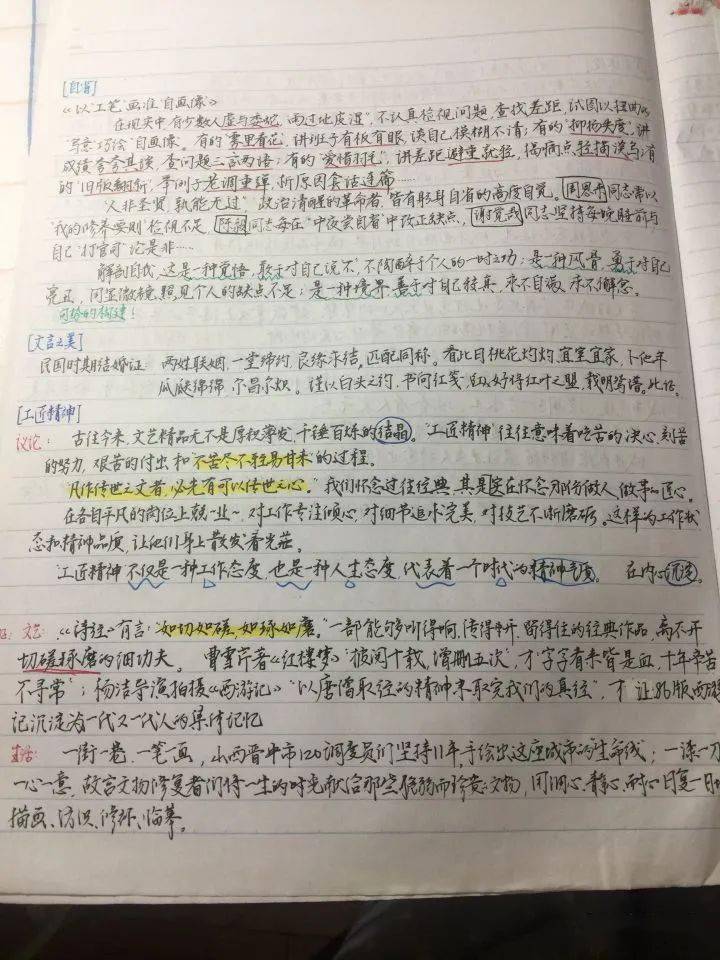 [自省]
《以"工笔"画准"自画像"》
在现实中,有少数人虚与委蛇,"雨过地皮湿",不认真检视问题,查找差距,试图以扭曲的
"写意"巧绘"自画像"。有的"雾里看花",讲班子有板有眼,谈自己模糊不清;有的"抑扬失度",讲
成绩夸夸其谈,查问题三言两语;有的"爱惜羽毛",讲差距避重就轻,揭病点轻描淡写;有
的"旧版翻新",举例子老调重弹,析原因套话连篇……
"人非圣贤,孰能无过"政治清醒的革命者,皆有躬身自省的高度自觉。周恩来同志常以
"我的修养要则"检视不足,陈毅同志每在"中夜尝自省"中改正缺点,谢觉哉同志坚持每晚睡前与
自己"打官司"论是非……
解剖自我,这是一种觉悟,敢于对自己说"不",不陶醉于个人的一时之功;是一种风骨,勇于对自己
亮丑,同显微镜照见个人的缺点不足;是一种境界,善于对自己较真,永不自满,永不懈怠。
[文言之美]
民国时期结婚证: 两姓联姻,一堂缔约,良缘永结,匹配同称。看此日桃花灼灼,宜室宜家,卜他年
瓜瓞绵绵,尔昌尔炽。谨以白头之约,书向红笺,好将红叶之盟,载明鸳谱。此证。
[工匠精神]
议论: 古往今来,文艺精品无不是厚积薄发,千锤百炼的结晶。"工匠精神"往往意味着吃苦的决心,刻苦
的努力,艰苦的付出和"不苦尽不轻易甘来"的过程。
"凡作传世之文者,必先有可以传世之心。"我们怀念过往经典,其是实在怀念那份做人做事的匠心。
在各自平凡的岗位上兢兢业业~,对工作专注倾心,对细节追求完美,对技艺不断磨砺。这样的工作状
态和精神品质,让他们身上散发着光茫。
"工匠精神"不仅是一种工作态度,也是一种人生态度,代表着一个时代的精神气质。 在内心沉淀。
文艺: 《诗经》有言:"如切如磋,如琢如磨。"一部能够叫得响,传得开,留得住的经典作品,离不开
切磋琢磨的细功夫。曹雪芹著《红楼梦》"披阅十载,增删五次",才"字字看来皆是血,十年辛苦
不寻常";杨洁导演拍摄《西游记》"以唐僧取经的精神来取完我们的真经",才让86版西游
记沉淀为一代又一代人的集体记忆
生活: 一街一巷,一笔一画,山西晋中市120调度员们坚持11年,手绘出这座城市的"生命线";一漆一刀,
一心一意,故宫文物修复者们将一生的时光献给那些脆弱而珍贵文物,用细心、静心、耐心日复一日地
描画、纺织、修补、临摹。